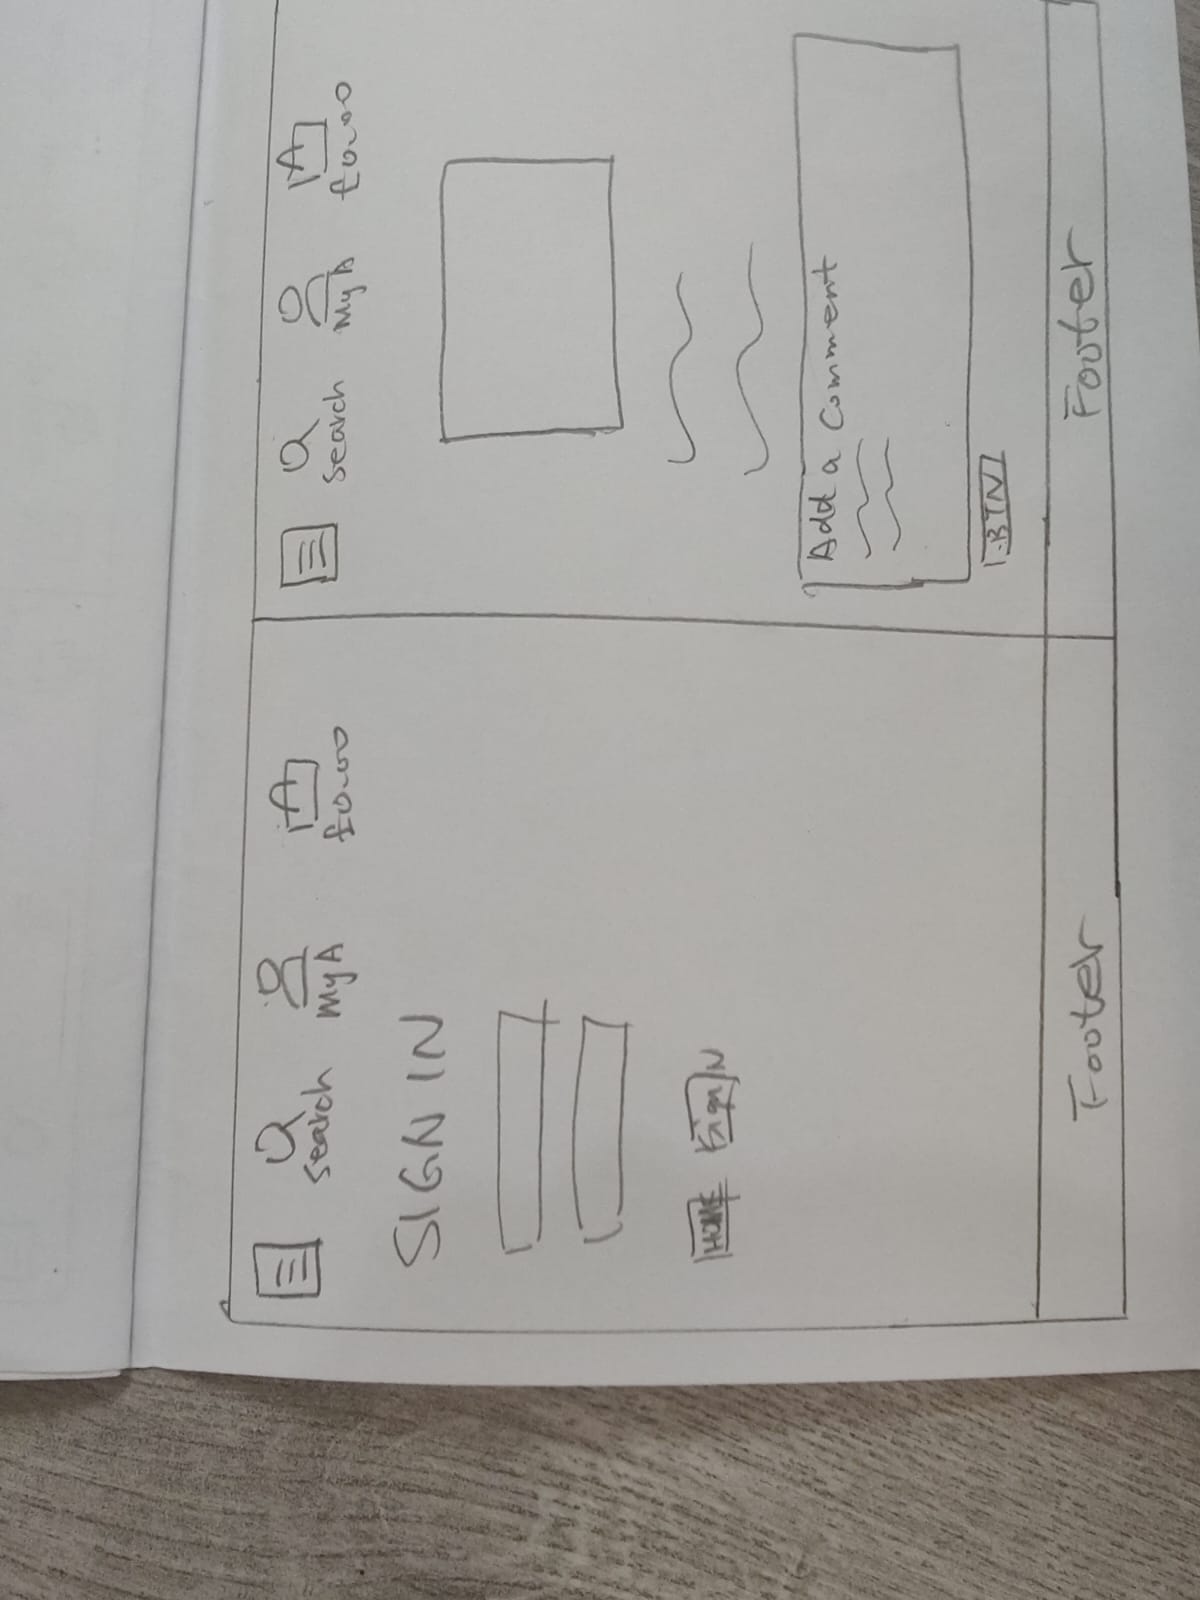 search
My A
£0.00
SIGN IN
HOME
Sign N
Footer
search
My A
£0.00
Add a Comment
BTN
Footer